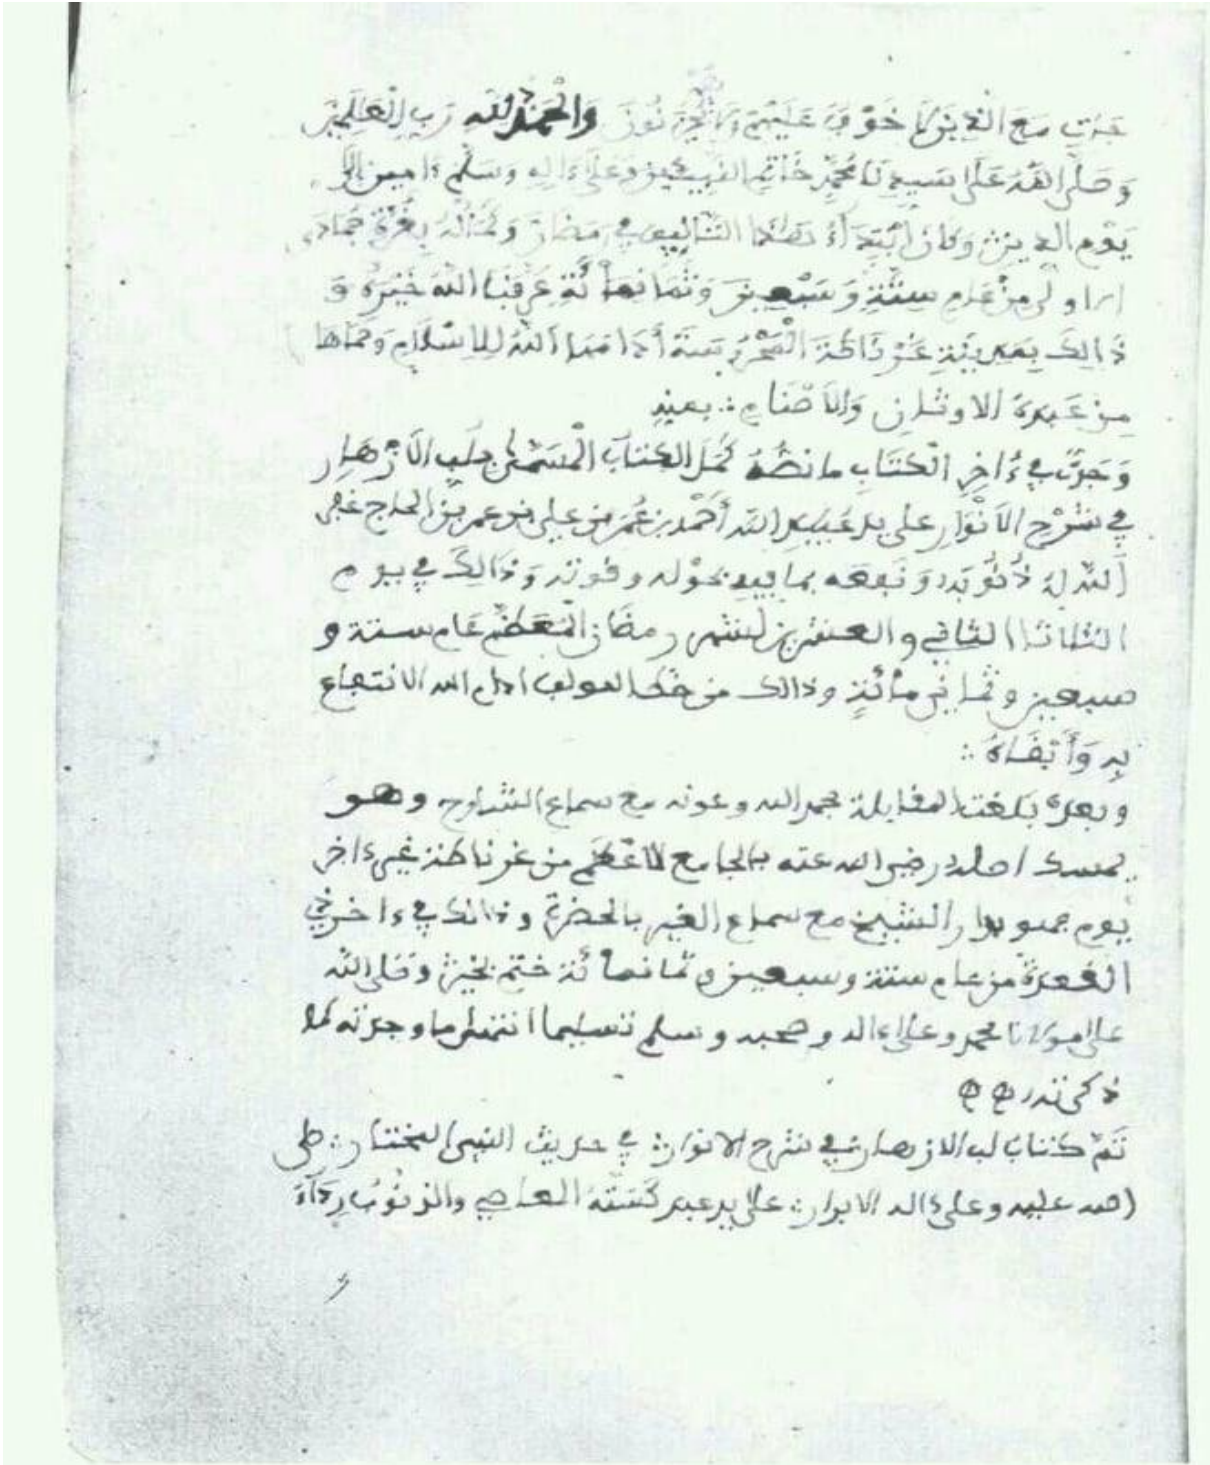 مع الذين لا خوف عليهم ولا يحزنون والحمد لله رب العلمين
وصلى الله على سيدنا محمد خاتم النبيئين وعلى ءاله وسلم ءامين إلى
يوم الدين وكان ابتداء هذا التأليف في رمضان وكماله بغرة جمادى
الاولى من عام ستة وسبعين وثمانمائة عرفنا الله خيره و
ذالك بمدينة غرناطة المحروسة أدامها الله للإسلام وحماها
من عبدة الاوثان والأصنام
وجدت في ءاخر الكتاب ما نصه كمل الكتاب المسمى بلب الأزهار
في شرح الأنوار على يد عبيد الله أحمد بن عمر بن علي بن عمر بن الحاج غفر
الله له ذنوبه ونفعه بما فيه بحوله وقوته وذالك في يوم
الثلاثا الثاني والعشرين لشهر رمضان المعظم عام ستة و
سبعين وثماني مائة وذالك من خط المولف ادام الله الانتفاع
به وأبقاه
وبعده بلغت المقابلة بحمد الله وعونه مع سماع الشارح وهو
يمسك اصله رضي الله عنه بالجامع الاعظم من غرناطة غير ءاخر
يوم الشيخ مع سماع الغير بالحضرة وذالك في ءاخر ذي
القعدة من عام ستة وسبعين وثمانمائة ختم بخير وصلى الله
على مولانا محمد وعلى ءاله وصحبه وسلم تسليما انتهى ما وجدته كما
ذكرته
تم كتاب لب الازهار في شرح الانوار في حديث النبي المختار صلى
الله عليه وعلى ءاله الابرار على يد عبد كسته المعاصي والذنوب رداء